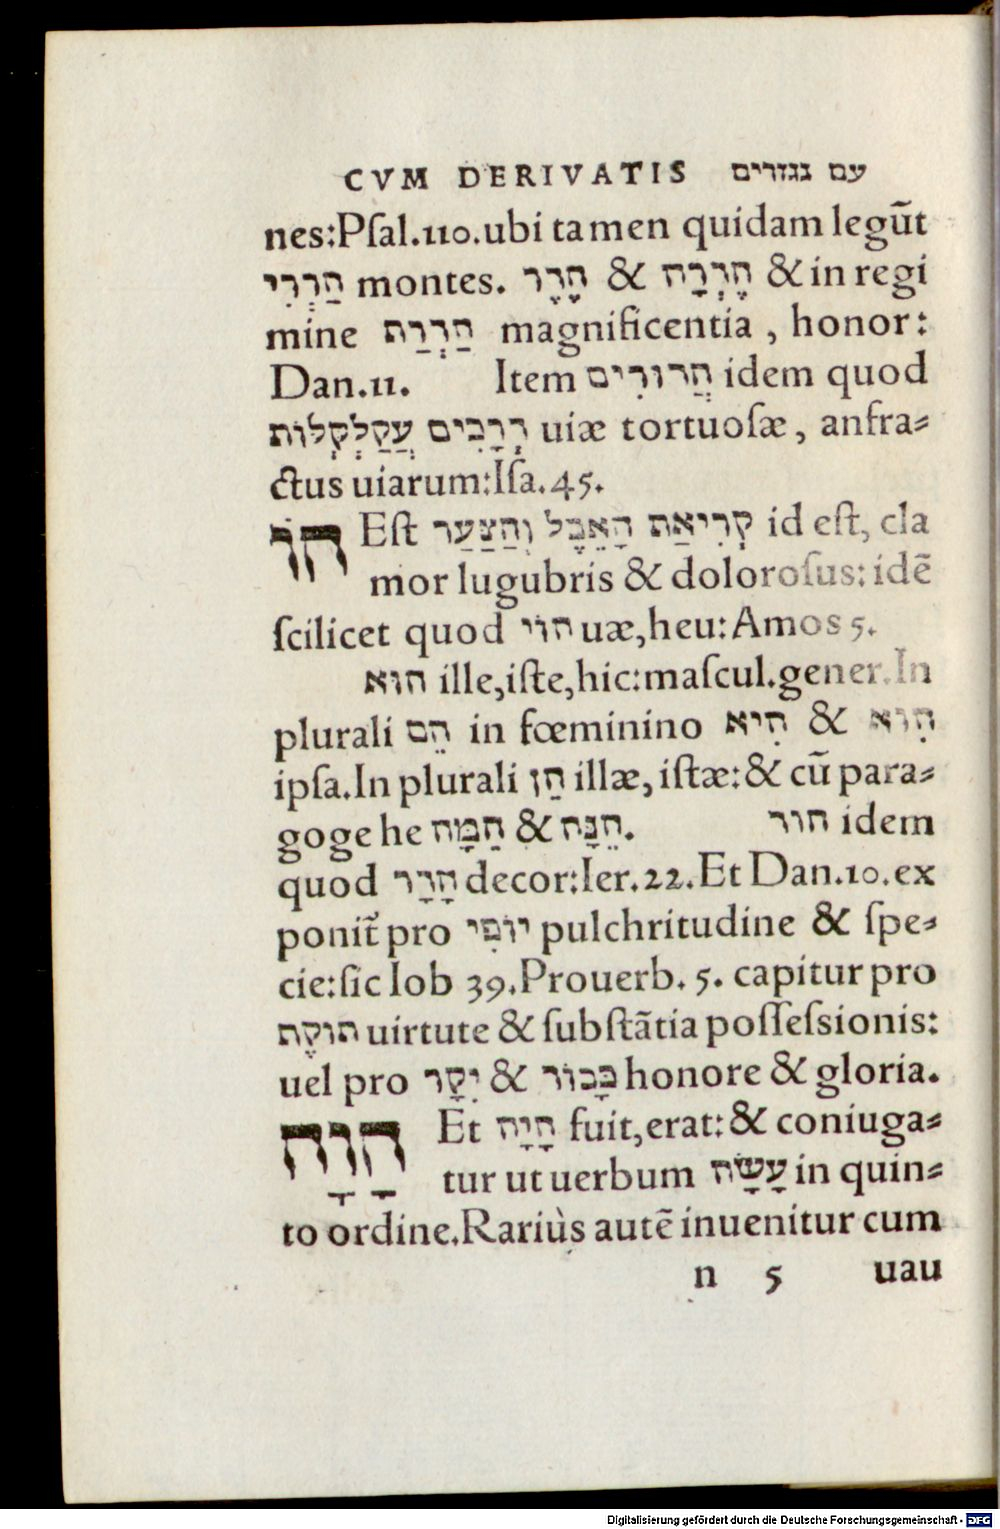 CVM DERIVATIS עם נגזרים
nes:Pſal.110.ubi tamen quidam legūt
הַרְרִי montes. הֶדֶר & הֶרְדָה & in regi
mine הַדְרַת magnificentia, honor:
Dan.11. Item הֲדוּרִים idem quod
דְרָכִים עֲקַלְקְלוֹת uiæ tortuoſæ, anfra⸗
ctus uiarum:Iſa.45.
הוֹ Eſt קְרִיאַת הָאֵבֶל וְהַצַעַר id eſt, cla
mor lugubris & doloroſus: idē
ſcilicet quod הוֹי uæ,heu:Amos 5.
הוּא ille,iſte,hic:maſcul.gener.In
plurali הֵם in fœminino הִיא & הִוא
ipſa.In plurali הַן illæ, iſtæ:& cū para⸗
goge he הֵנָּה & הֵמָּה.
הוד idem
quod הָדָר decor:Ier.22.Et Dan.10.ex
ponit̃ pro יוֹפִי pulchritudine & ſpe⸗
cie:ſic Iob 39.Prouerb. 5. capitur pro
uirtute & ſubſtātia poſſeſsionis:
uel pro יְקָר & כָּבוֹד honore & gloria.
הָוָה Et הָיָה fuit,erat:& coniuga⸗
tur ut uerbum עָשָׂה in quin⸗
to ordine.Rariùs autē inuenitur cum
n 5 uau
Digitalisierung gefördert durch die Deutsche Forschungsgemeinschaft - DFG